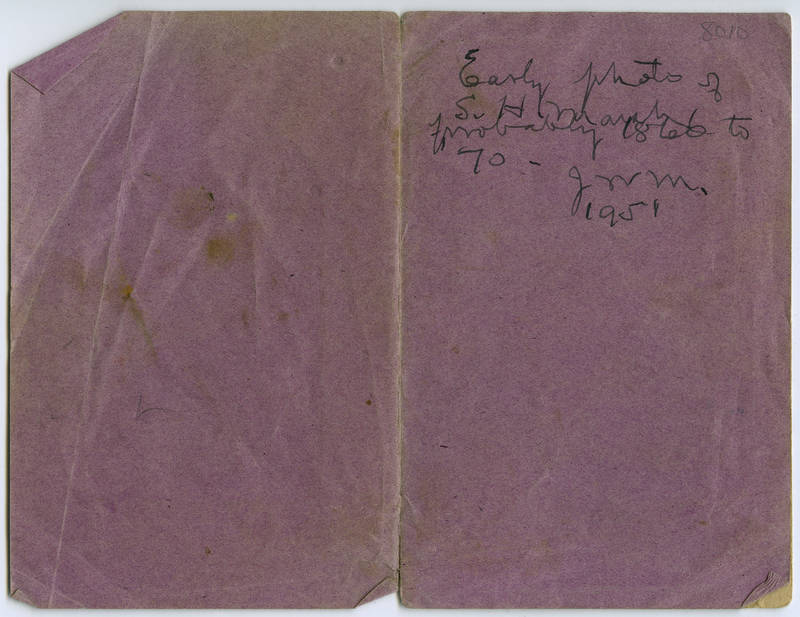 8010
Early photo of
S. H. Marsh
probably 1866 to
70 –
J W M.
1951